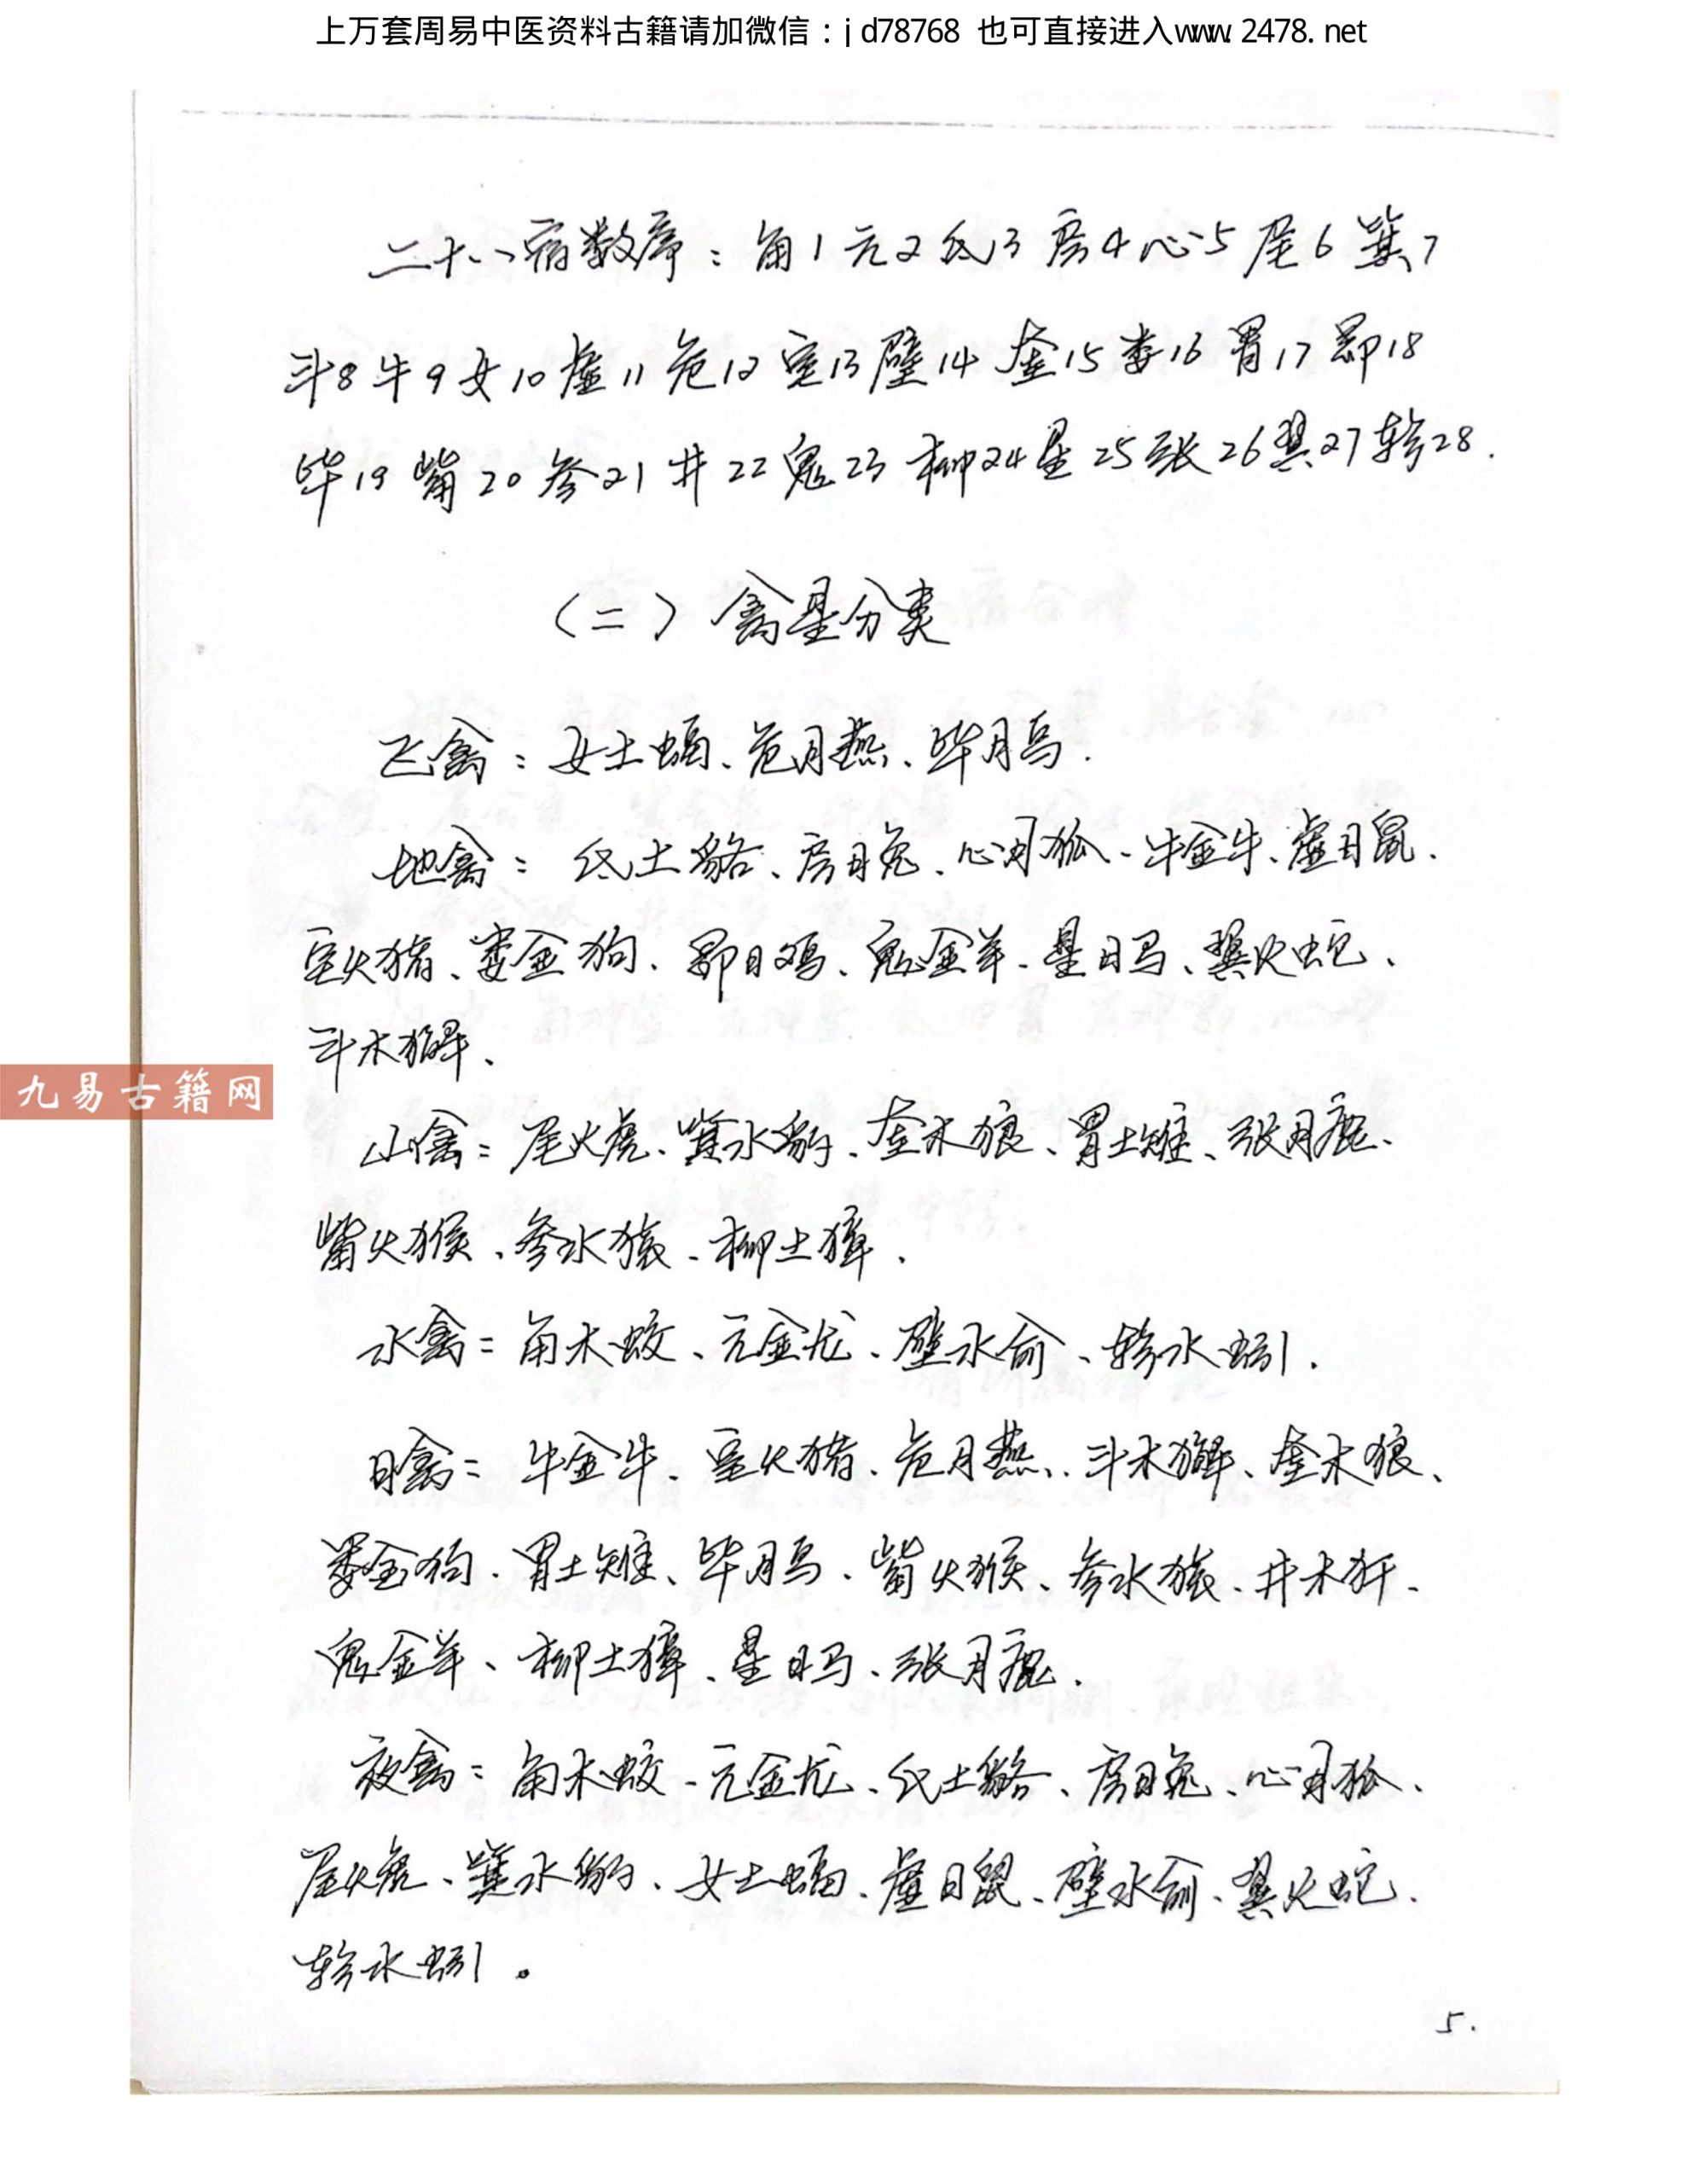 上万套周易中医资料古籍请加微信：jd78768 也可直接进入www.2478.net
二十八宿数序：角1 亢2 氐13 房4 心5 尾6 箕7
斗8 牛9 女10 虚11 危12 室13 壁14 奎15 娄16 胃17 昴18
毕19 觜20 参21 井22 鬼23 柳24 星25 张26 翼27 轸28.
（二）禽星分类
飞禽：女土蝠、危月燕、毕月乌.
地禽：氐土貉、房日兔、心月狐、牛金牛、虚日鼠.
室火猪、娄金狗、昴日鸡、鬼金羊、星日马、翼火蛇、
斗木獬、
山禽：尾火虎、箕水豹、奎木狼、胃土雉、张月鹿、
觜火猴、参水猿、柳土獐.
水禽：角木蛟、亢金龙、壁水俞、轸水蚓.
日禽：牛金牛、室火猪、危月燕、斗木獬、奎木狼、
娄金狗、胃土雉、毕月乌、觜火猴、参水猿、井木犴、
鬼金羊、柳土獐、星日马、张月鹿.
九易古籍网
夜禽：角木蛟、亢金龙、氐土貉、房日兔、心月狐、
尾火虎、箕水豹、女土蝠、虚日鼠、壁水俞、翼火蛇.
轸水蚓。
5.